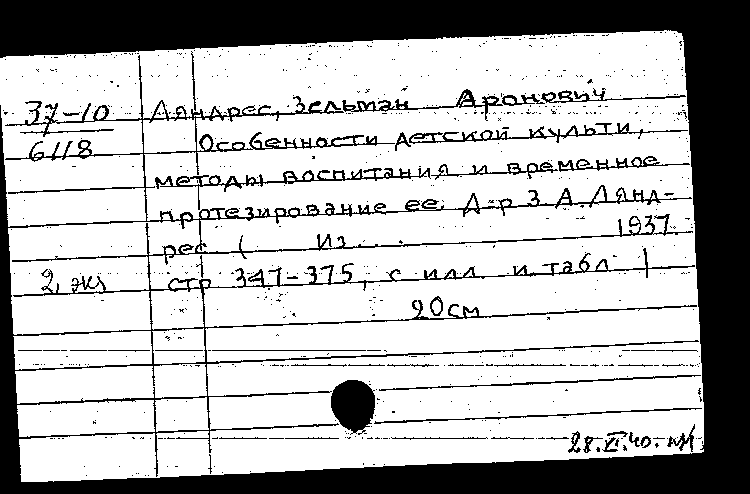 37-10
6118
Ляндрес, Зельман Аронович
Особенности детской культи,
методы воспитания и временное
протезирование ее. Д-р З. А. Лянд-
рес ( Из ... 1937.
стр 347-375, с илл. и табл )
2 экз
20 см
28.XI.40.